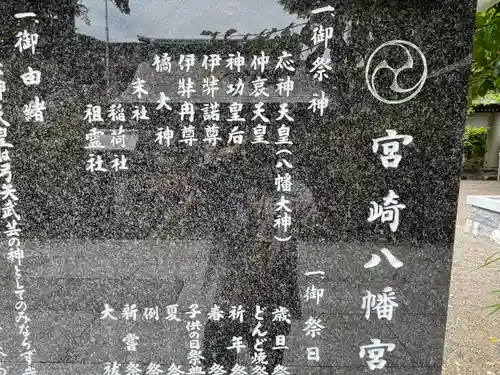 宮崎八幡宮
一御祭神
応神天皇(八幡大神)
仲哀天皇
神功皇后
伊弉諾尊
伊弉冉尊
橘大神
末社
稲荷社
祖霊社
一御祭日
歳旦祭
どんど焼祭
祈年祭
春祭
子供の日祭典
夏祭
例祭
新嘗祭
大祓
一御由緒
天皇は弓矢武芸の神としてのみならず